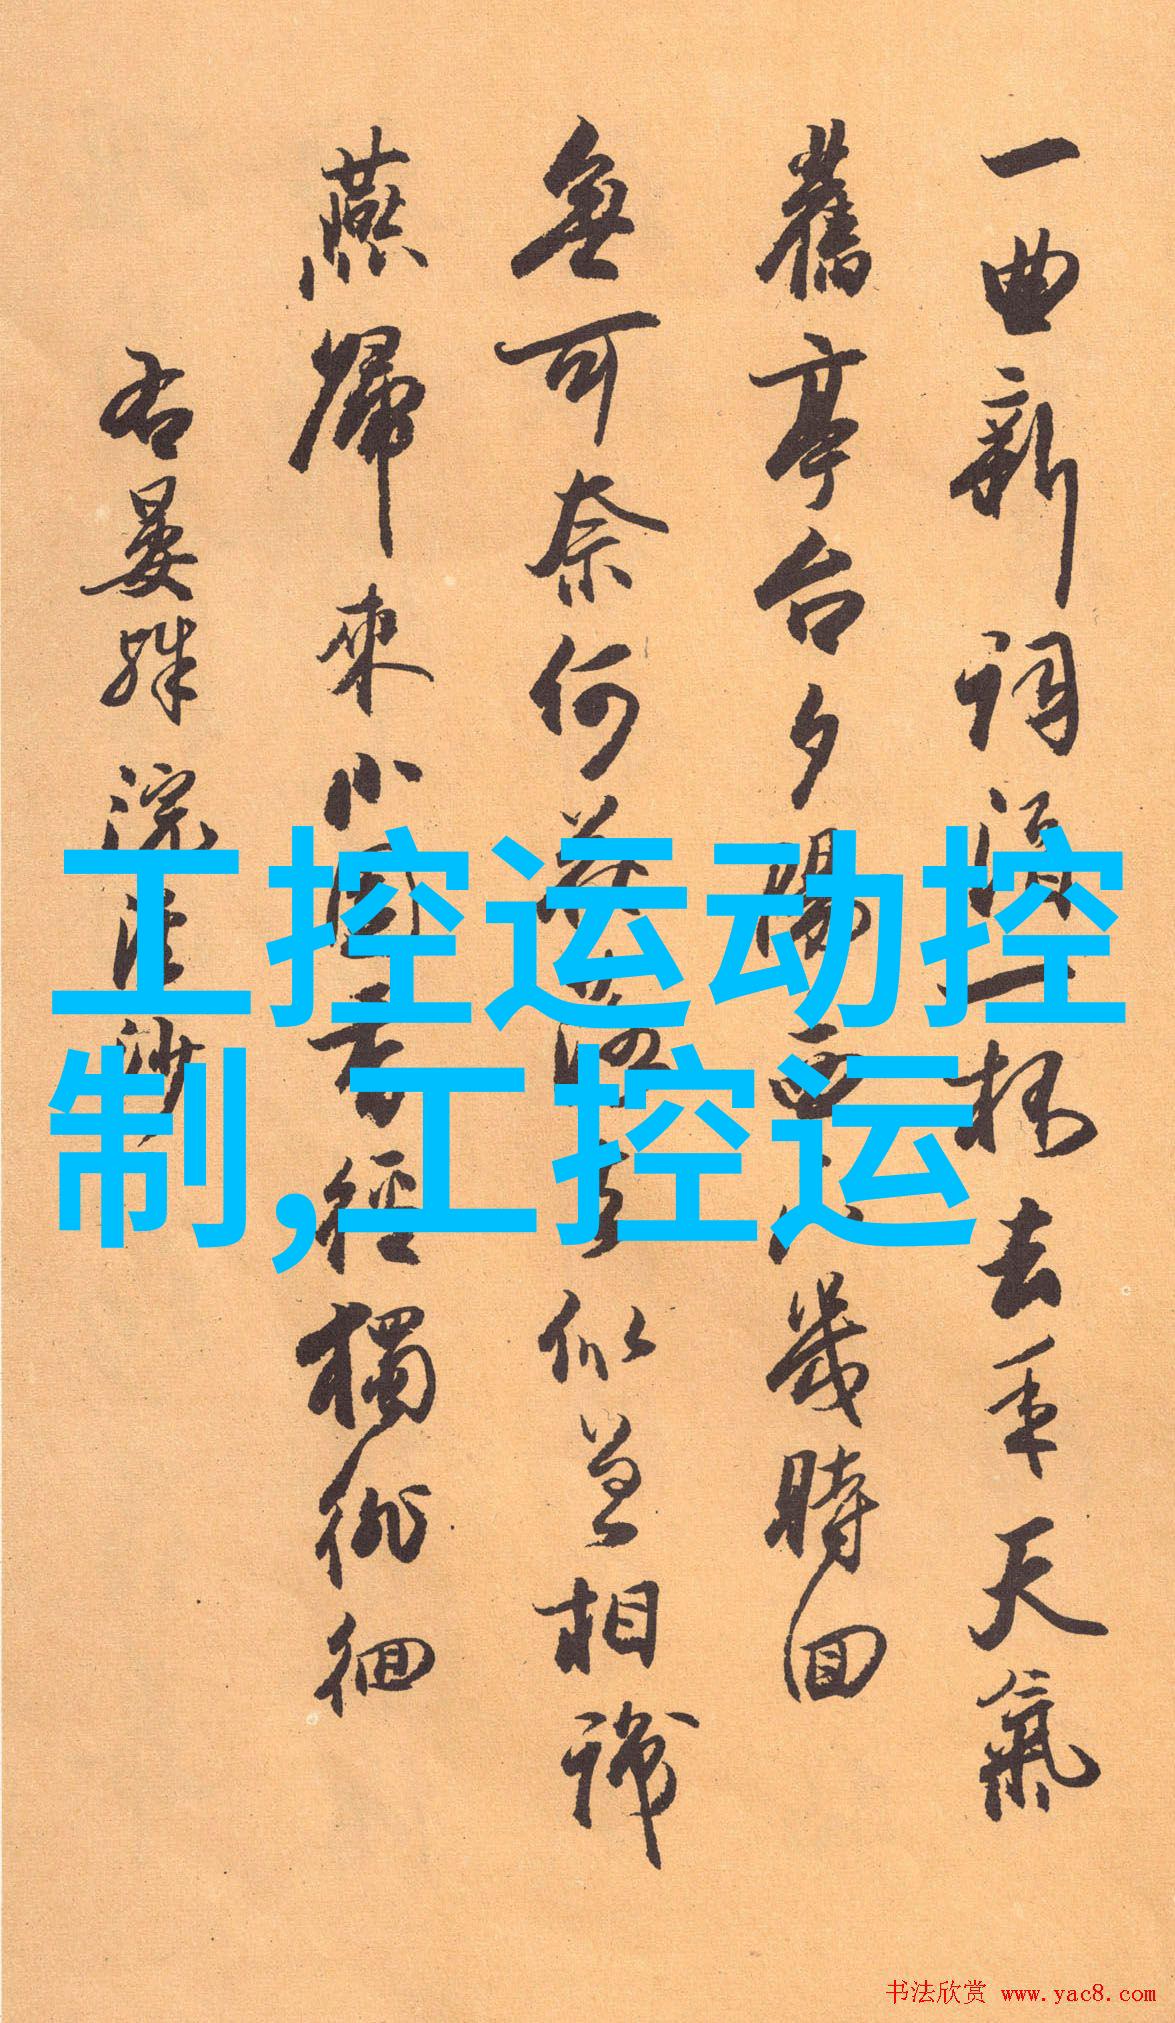 一曲新词酒一杯去年天氣
舊亭台夕陽西下幾時回
無可奈何花落去似曾相識
燕歸來小園香徑獨徘徊
右晏殊浣溪沙
工控运动控
制,工控运
书法欣赏 www.yac8.com